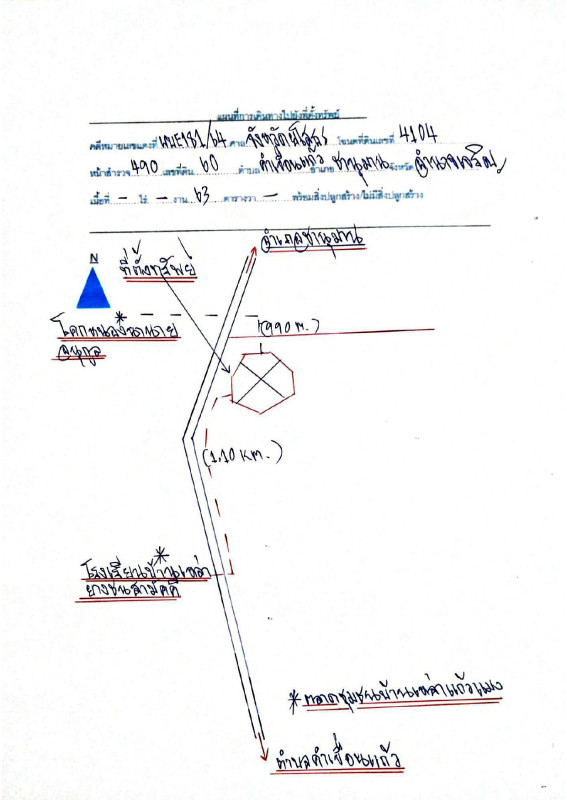 แผนที่การเดินทางไปยังที่ตั้งทรัพย์
คดีหมายเลขแดงที่ ผบE181/64 ศาล จังหวัดยโสธร โฉนดที่ดินเลขที่ 4104
หน้าสำรวจ 490 เลขที่ดิน 60 ตำบล คำเขื่อนแก้ว อำเภอ ชานุมาน จังหวัด อำนาจเจริญ
เนื้อที่ - ไร่ - งาน 63 ตารางวา - พร้อมสิ่งปลูกสร้าง/ไม่มีสิ่งปลูกสร้าง
อำเภอชานุมาน
N
ที่ตั้งทรัพย์
(990 m.)
(1.10 km.)
โรงเรียนบ้านเหล่า
ยางชุมสามัคคี
* ตลาดชุมชนบ้านเหล่าแก้วแมง
ตำบลคำเขื่อนแก้ว